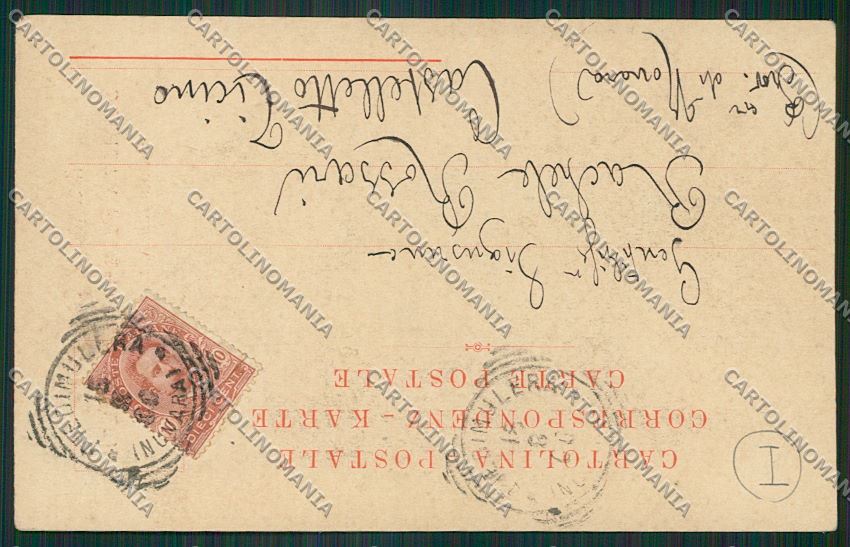 CARTOLINA POSTALE
CORRESPONDENZ-KARTE
CARTE POSTALE
Gentil.ma Signorina
Rachele Rossari
Castelletto Ticino
(Prov. di Novara)
DIECI CENT.
I
CARTOLINOMANIA